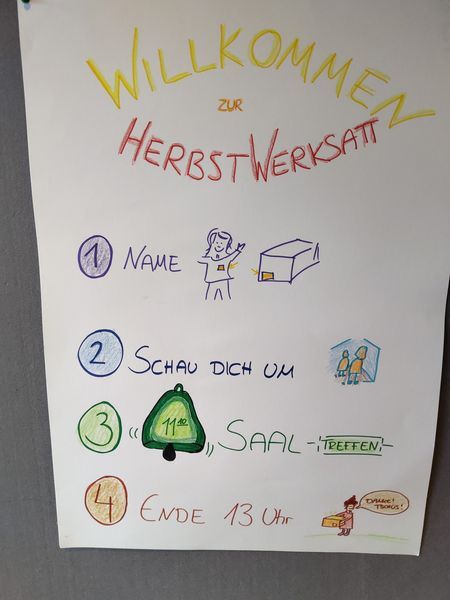 WILLKOMMEN
ZUR
HERBSTWERKSATT
1 NAME
2 SCHAU DICH UM
3 11:10 SAAL - TREFFEN -
4 ENDE 13 Uhr
DANKE!
TSCHÜS!